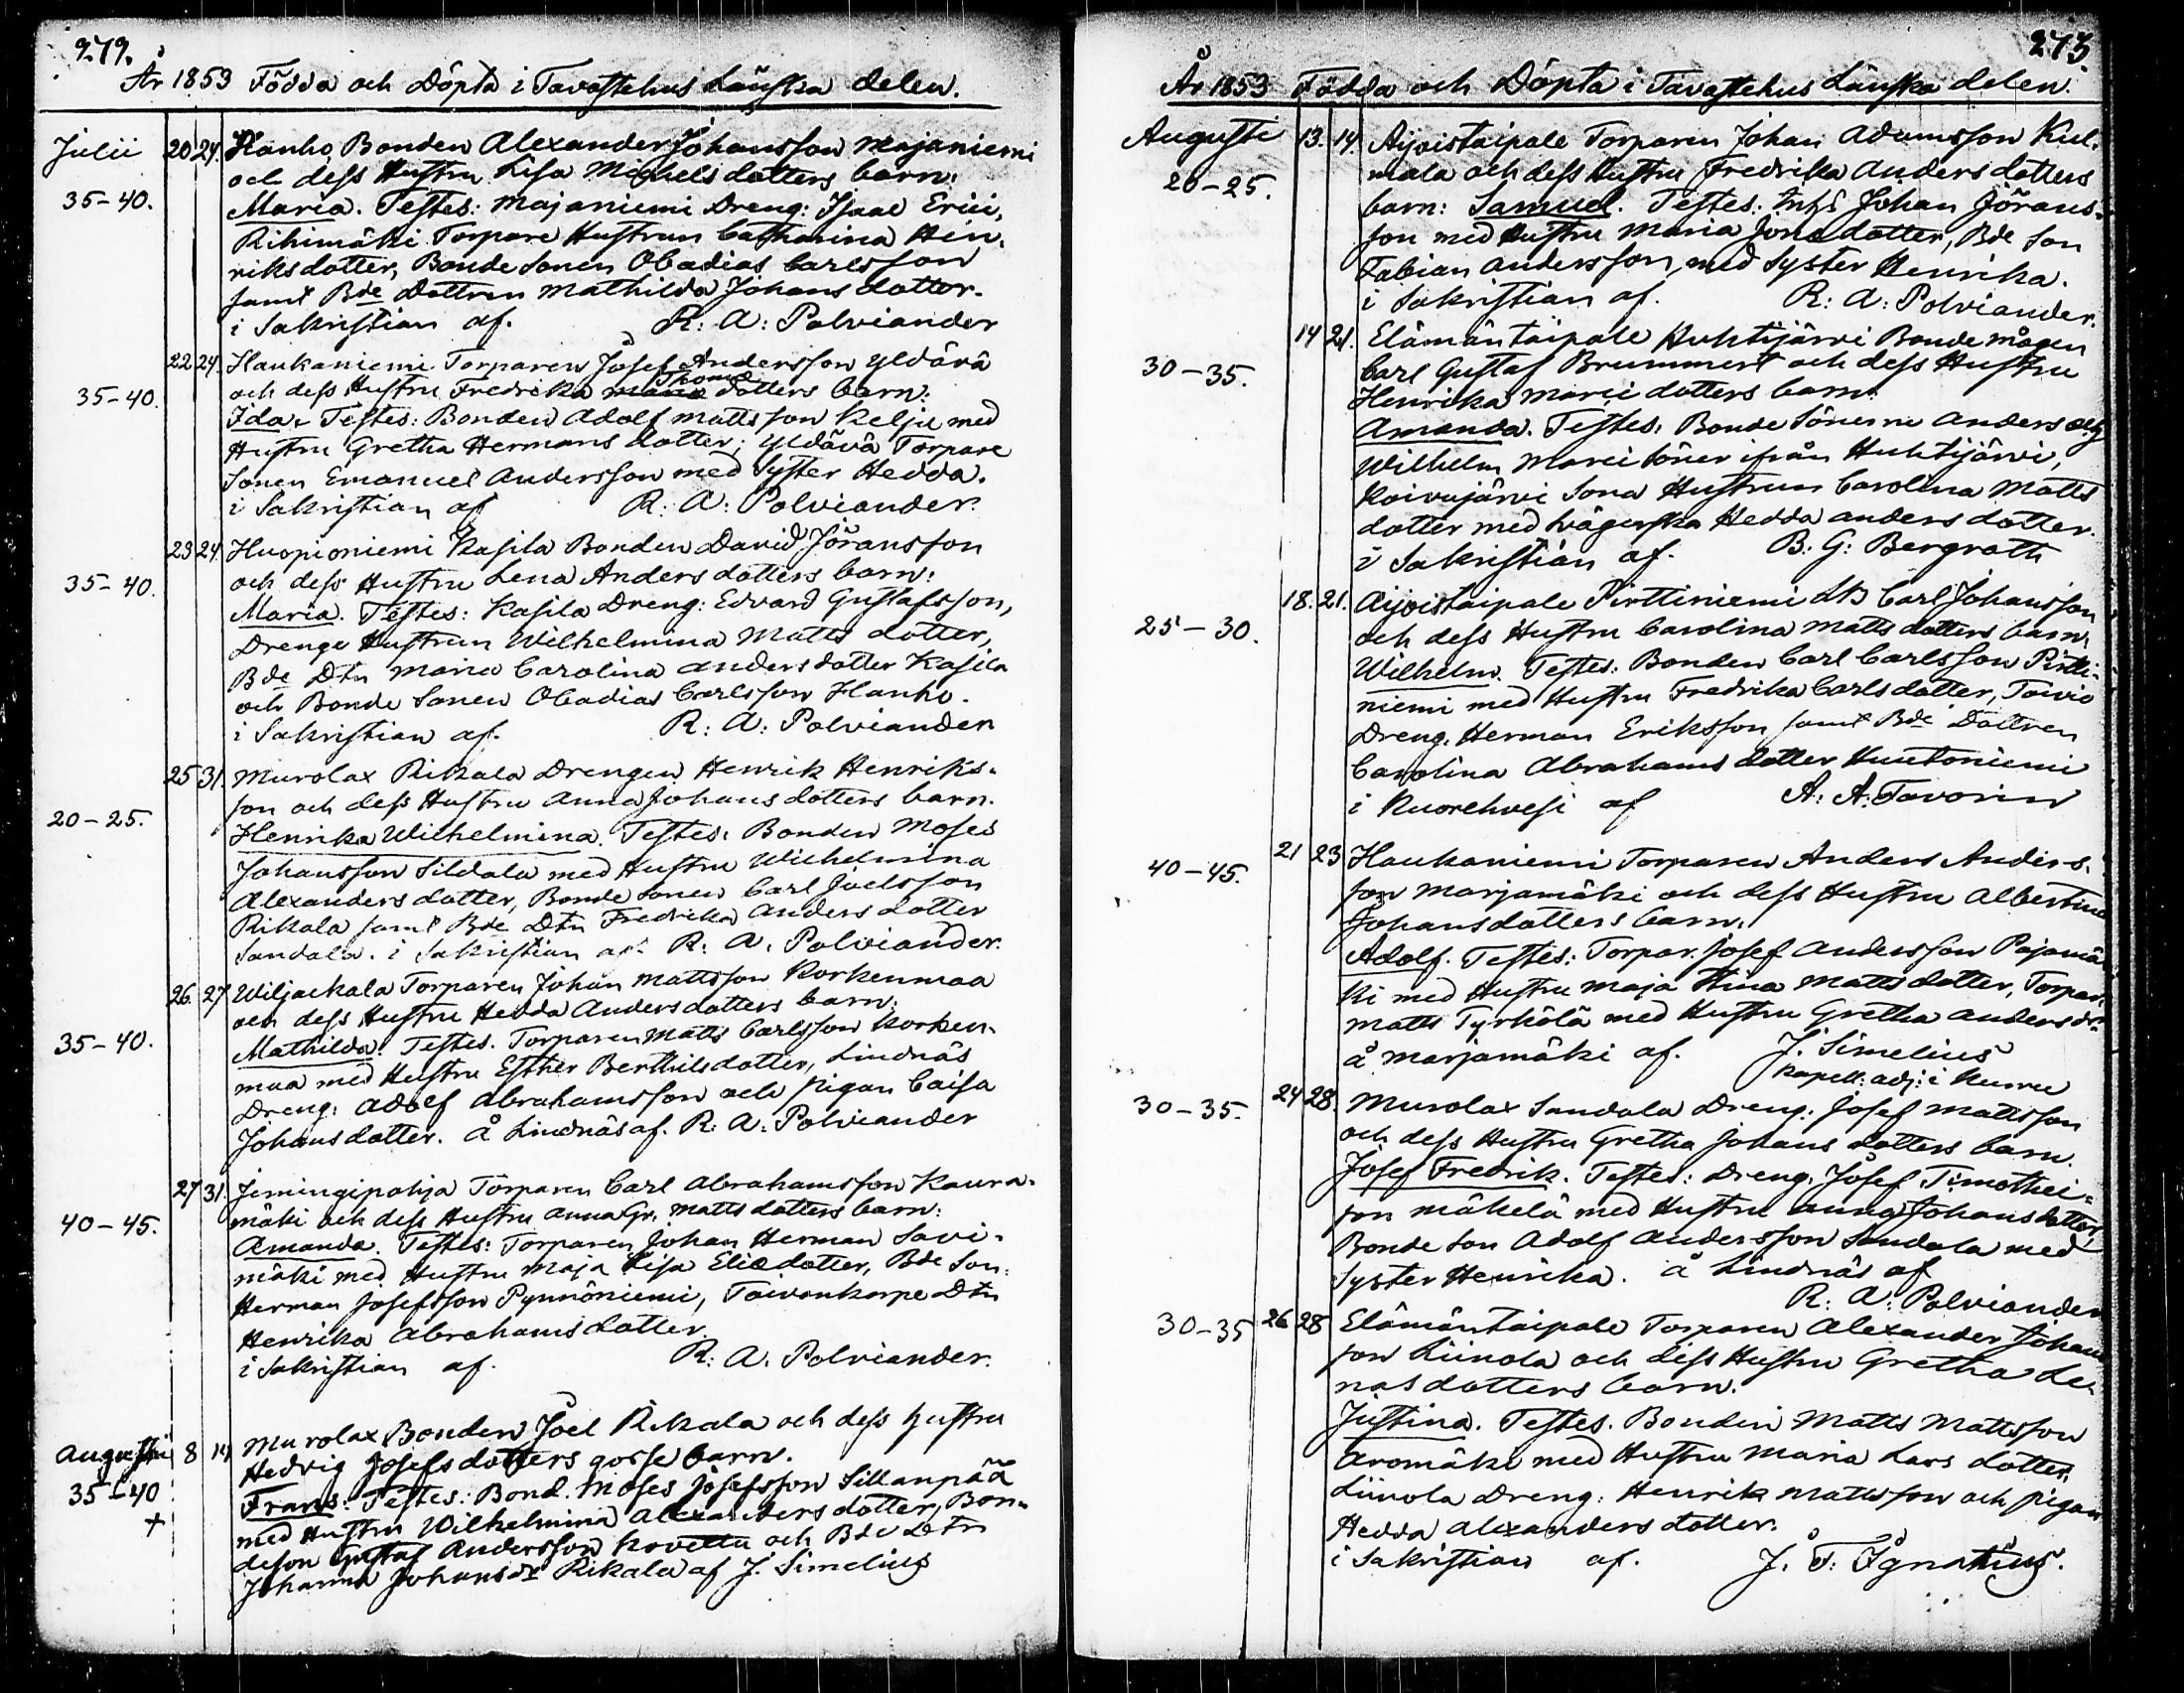 272.
År 1853 Födda och Döpta i Tavastehus Länska delen.
Julii 20 24. Hanho Bonden Alexander Johansson Majaniemi
och dess Hustru Lisa Michels dotters barn:
35-40. Maria. Testes: Majaniemi Dreng: Isaac Erici,
Rihimäki Torpare Hustrun Catharina Hen-
riksdotter, Bonde Sonen Obadias Carlsson
samt Bde Dottren Mathilda Johans dotter.
i Sakristian af. R: A: Polviander
22 24. Haukaniemi Torparen Josef Andersson Yldävä
35-40. och dess Hustru Fredrika Thomæ dotters barn:
Ida. Testes: Bonden Adolf Mattsson Kelju med
Hustru Gretha Hermans dotter; Yldävä Torpare
Sonen Emanuel Andersson med Syster Hedda.
i Sakristian af R: A: Polviander.
23 24. Huopioniemi Kasila Bonden David Göransson
35-40. och dess Hustru Lena Anders dotters barn:
Maria. Testes: Kasila Dreng: Edvard Gustafsson,
Drenge Hustrun Wilhelmina Matts dotter,
Bde Dtn Maria Carolina Anders dotter Kasila
och Bonde Sonen Obadias Carlsson Hanho.
i Sakristian af. R: A: Polviander
25 31. Murolax Rikala Drengen Henrik Henriks-
son och dess Hustru Anna Johans dotters barn.
20-25. Henrika Wilhelmina. Testes: Bonden Moses
Johansson Sildala med Hustru Wilhelmina
Alexanders dotter, Bonde Sonen Carl Joelsson
Rikala samt Bde Dtn Fredrika Anders dotter
Sandala. i Sakristian af. R: A. Polviander.
26. 27 Wiljackala Torparen Johan Mattsson Korkenmaa
och dess Hustru Hedda Anders dotters barn:
35-40. Mathilda. Testes. Torparen Matts Carlsson Korken-
maa med Hustru Esther Berthilsdotter, Lindnäs
Dreng: Adolf Abrahamsson och pigan Caisa
Johans dotter. å Lindnäs af. R: A: Polviander
27 31. Jemingipohja Torparen Carl Abrahamsson Kaura-
mäki och dess Hustru Anna Gr. Matts dotters barn:
40-45. Amanda. Testes: Torparen Johan Herman Savi-
mäki med Hustru Maja Lisa Eliæ dotter, Bde Son:
Herman Josefsson Pynnöniemi, Toivonkorpe Dtn
Henrika Abrahams dotter.
i Sakristian af. R: A. Polviander.
Augusti 8 14 Murolax Bonden Joel Rikala och dess Hustru
Hedvig Josefs dotters gosse barn.
35-40 Frans: Testes: Bond. Moses Josefsson Sillanpää
+ med Hustru Wilhelmina Alexanders dotter, Bon-
deson Gustaf Andersson Kovetta och Bde Dtn
Johanna Johans dr Rikala af J. Simelius
273.
År 1853 Födda och Döpta i Tavastehus Länska delen.
Augusti 13. 14. Aijvistaipale Torparen Johan Adamsson Kul-
20-25. mala och dess Hustru Fredrika Anders dotters
barn: Samuel. Testes: Johan Jörans-
son med Hustru Maria Jona dotter, Bde Son
Fabian Andersson, med Syster Henrika.
i Sakristian af. R: A: Polviander.
14 21. Elämäntaipale Huhtijärvi Bonde mågen
30-35. Carl Gustaf Brummert och dess Hustru
Henrika Marci dotters barn:
Amanda. Testes. Bonde Sönerne Anders och
Wilhelm Marci söner ifrån Huhtijärvi,
Koivujärvi Sona Hustrun Carolina Matts
dotter med svägerska Hedda Anders dotter.
i Sakristian af. B: G: Bergroth
18. 21. Aijvistaipale Pirttiniemi Carl Johansson
25-30. och dess Hustru Carolina Matts dotters barn.
Wilhelm. Testes: Bonden Carl Carlsson Pirtti-
niemi med Hustru Fredrika Carls dotter, Toivio
Dreng: Herman Eriksson samt Bde Dottren
Carolina Abrahams dotter Huutoniemi
i Kuorehvesi af A: A: Favorin
21 23 Haukaniemi Torparen Anders Anders-
40-45. son Marjamäki och dess Hustru Albertina
Johansdotters barn.
Adolf. Testes: Torpar. Josef Andersson Pajamä
ki med Hustru Maja Stina Matts dotter, Torpar.
Matts Tyrkölä med Hustru Gretha Anders dr.
å Marjamäki af. J. Simelius
Kapell: adj: i Kuru
24 28. Murolax Sandala Dreng: Josef Mattsson
30-35. och dess Hustru Gretha Johans dotters barn.
Josef Fredrik. Testes: Dreng. Josef Timothei-
son Mäkelä med Hustru Anna Johans dotter,
Bonde Son Adolf Andersson Sandala med
Syster Henrika. å Lindnäs af
R: A: Polviander
30-35 26 28 Elämäntaipale Torparen Alexander Johans
son Liinola och dess Hustru Gretha Le-
nas dotters barn.
Justina. Testes. Bonden Matts Mattsson
Aromäki med Hustru Maria Lars dotter,
Liinola Dreng: Henrik Mattsson och pigan
Hedda Alexanders dotter.
i Sakristian af. J. F: Ignatius.